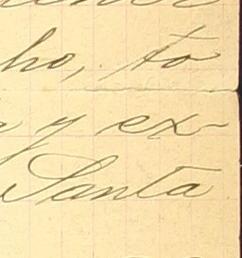 ho, to
y ex-
Santa